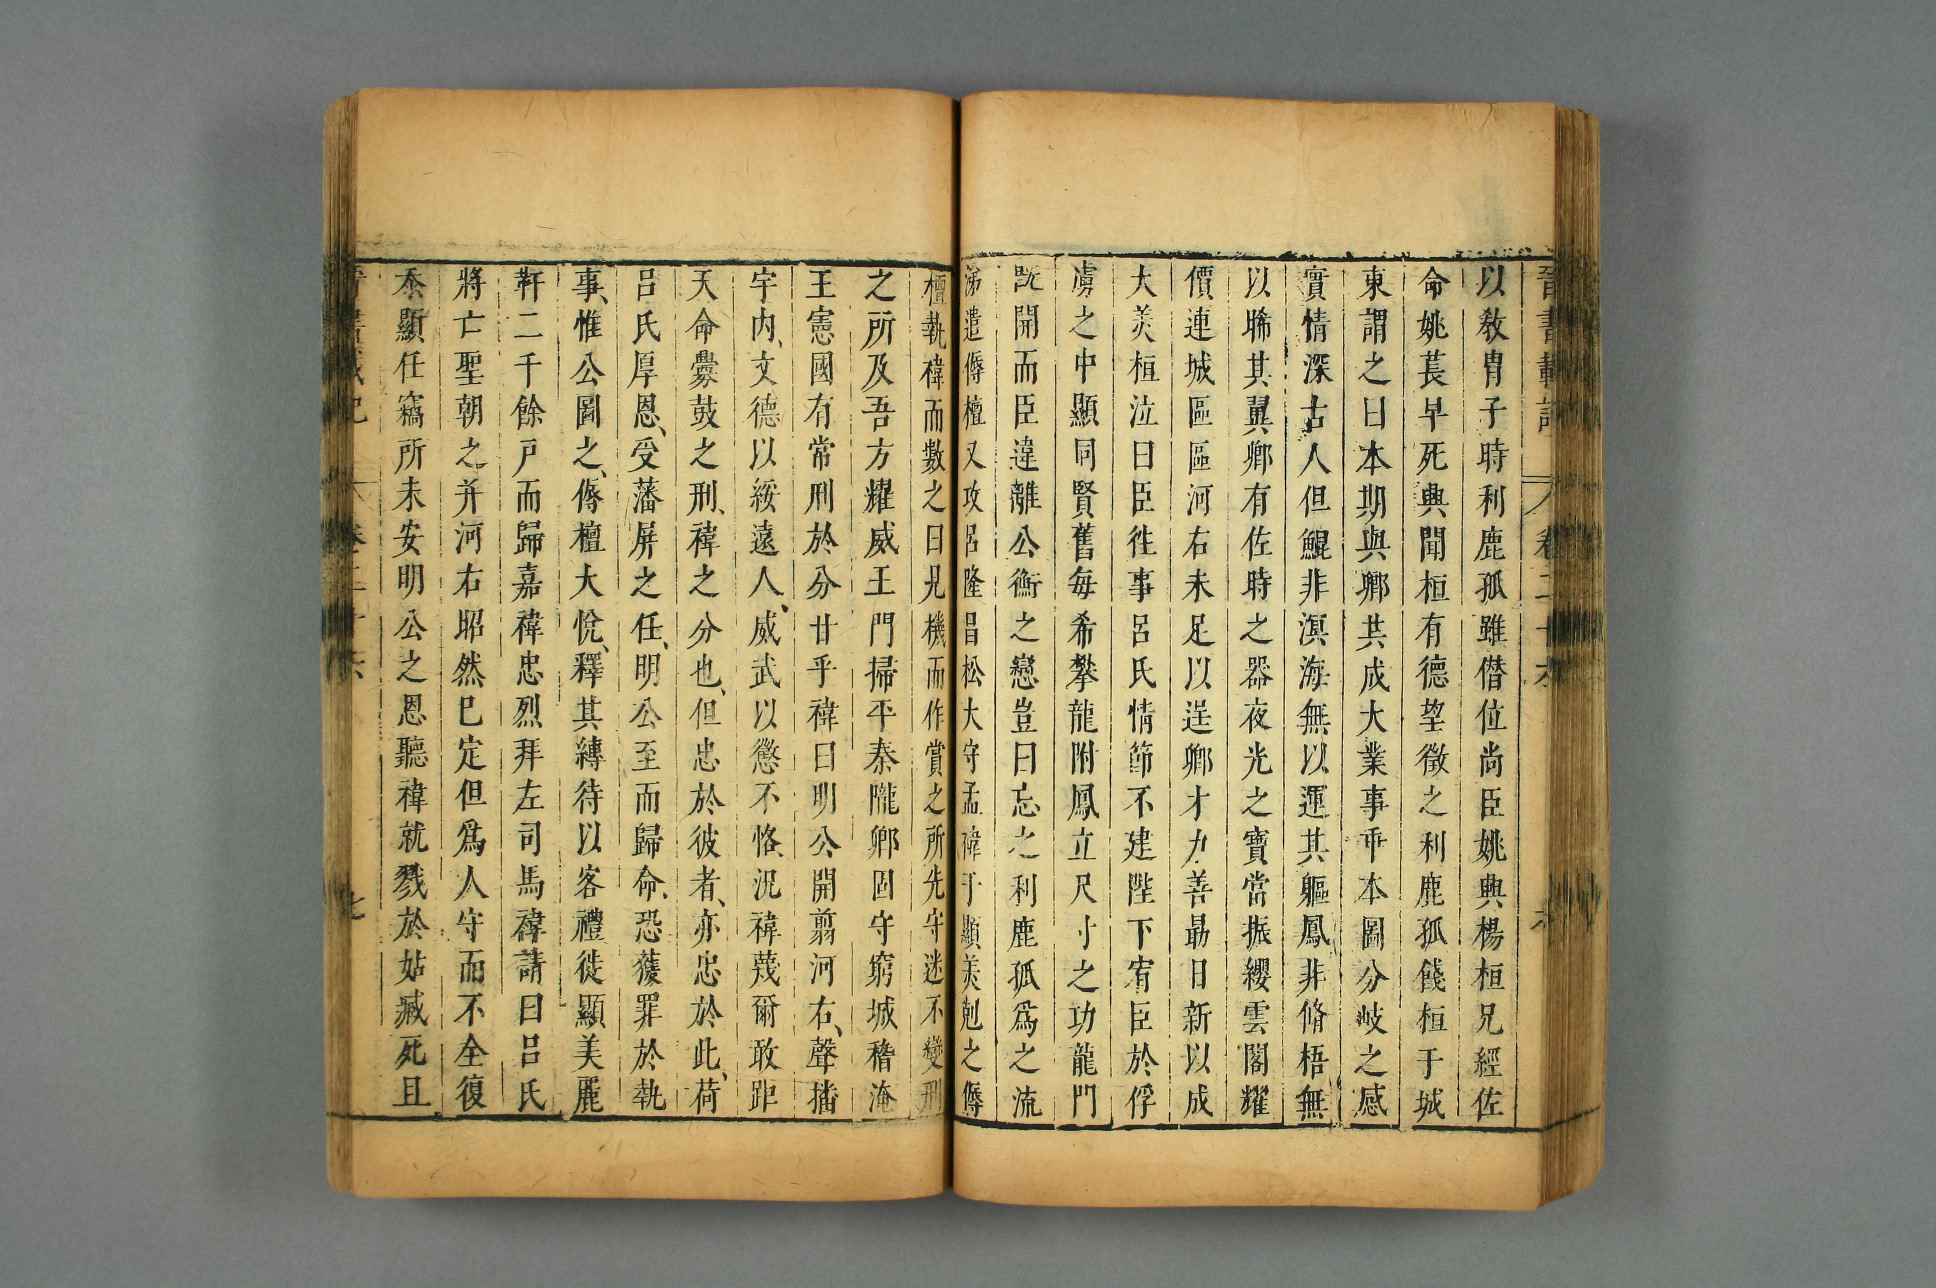 晉書載記 卷二十六 六
以教胄子時利鹿孤雖僭位尚臣姚興楊桓兄經佐
命姚萇早死興聞桓有德望徵之利鹿孤餞桓于城
東謂之曰本期與卿共成大業事乖本圖分岐之感
實情深古人但鯤非溟海無以運其軀鳳非脩梧無
以晞其翼卿有佐時之器夜光之寶當振纓雲閣耀
價連城區區河右未足以逞卿才力善勗日新以成
大美桓泣曰臣徃事呂氏情節不建陛下宥臣於俘
虜之中顯同賢舊每希攀龍附鳳立尺寸之功龍門
旣開而臣違離公衡之戀豈曰忘之利鹿孤爲之流
涕遣傉檀又攻呂隆昌松太守孟禕于顯美剋之傉
檀執禕而數之曰見機而作賞之所先守迷不變刑
之所及吾方耀威玉門掃平秦隴卿固守窮城稽淹
王憲國有常刑於分甘乎禕曰明公開翦河右、聲播
宇內、文德以綏遠人、威武以懲不恪、況禕蔑爾敢距
天命釁鼓之刑、禕之分也、但忠於彼者、亦忠於此、荷
呂氏厚恩、受藩屏之任、明公至而歸命、恐獲罪於執
事、惟公圖之、傉檀大悅、釋其縛待以客禮徙顯美麗
靬二千餘戸而歸嘉禕忠烈拜左司馬禕請曰呂氏
將亡聖朝之并河右昭然已定但爲人守而不全復
忝顯任竊所未安明公之恩聽禕就戮於姑臧死且
晉書載記 卷二十六 七